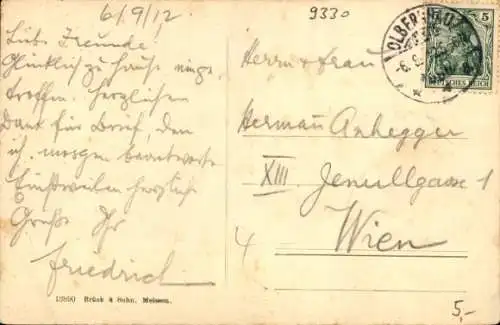 6/9/12
Liebe Freunde!
Glücklich zu Hause einge-
troffen. Herzlichen
Dank für Brief, den
ich morgen beantworte
Einstweilen herzliche
Grüße Ihr
Friedrich
13860 Brück & Sohn, Meissen.
9330
OLBERNHAU
5
DEUTSCHES REICH
Herrn u Frau
Hermann Anhegger
XIII Jenullgasse 1
Wien
4
5,-